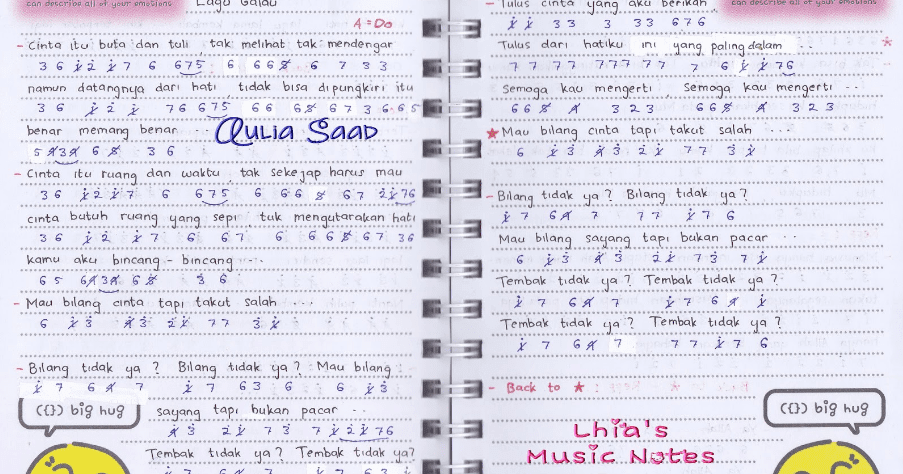 can describe all of your emotions
Lagu Galau
A = Do
- Cinta itu buta dan tuli, tak melihat tak mendengar
3 6 1̇ 2̇ 1̇ 7 6 6 7 5 6 6 6 5̸ 6 7 3 3
namun datangnya dari hati, tidak bisa dipungkiri itu
3 6 1̇ 2̇ 1̇ 7 6 6 7 5 6 6 6 5̸ 6 7 3 6 6 5
benar memang benar ...
5 4̸ 3 4̸ 6 5̸ 3 6
Qulia Saad
- Cinta itu ruang dan waktu, tak sekejap harus mau
3 6 1̇ 2̇ 1̇ 7 6 6 7 5 6 6 6 5̸ 6 7 2̇ 1̇ 7 6
cinta butuh ruang yang sepi, tuk mengutarakan hati
3 6 1̇ 2̇ 1̇ 7 6 6 7 6 6 6 5̸ 6 7 3 6
kamu aku bincang - bincang ...
6 5 6 4̸ 3 4̸ 6 5̸ 3 6
- Mau bilang cinta tapi takut salah ...
6 1̇ 3̇ 4̸̇ 3̇ 2̇ 1̇ 7 7 3̇ 1̇
- Bilang tidak ya ? Bilang tidak ya ? Mau bilang
1̇ 7 6 4̸ 7 1̇ 7 6 3 6 6 1̇ 3̇
sayang tapi bukan pacar ...
4̸̇ 3̇ 2̇ 1̇ 7 3̇ 7 1̇ 2̇ 1̇ 7 6
Tembak tidak ya ? Tembak tidak ya?
1̇ 7 6 4̸ 7 1̇ 7 6 3 6
({}) big hug
can describe all of your emotions
- Tulus cinta yang aku berikan ...
1̇ 1̇ 3 3 3 3 3 6 7 6
Tulus dari hatiku ini yang paling dalam
7 7 7 7 7 7 7 7 7 7 6 1̇ 1̇ 7 6
Semoga kau mengerti, Semoga kau mengerti ...
6 6 5̸ 4̸ 3 2 3 6 6 5̸ 4̸ 3 2 3
★ Mau bilang cinta tapi takut salah ....
6 1̇ 3̇ 4̸̇ 3̇ 2̇ 1̇ 7 7 3̇ 1̇
- Bilang tidak ya ? Bilang tidak ya ?
1̇ 7 6 4̸ 7 7 7 1̇ 7 6
Mau bilang sayang tapi bukan pacar ...
6 1̇ 3̇ 4̸̇ 3̇ 2̇ 1̇ 7 3̇ 7 1̇
Tembak tidak ya ? Tembak tidak ya ?
1̇ 7 6 4̸ 7 1̇ 7 6 4̸ 1̇
Tembak tidak ya ? Tembak tidak ya ?
1̇ 7 6 4̸ 7 7 7 1̇ 7 6
- Back to ★ :
({}) big hug
Lhia's
Music Notes